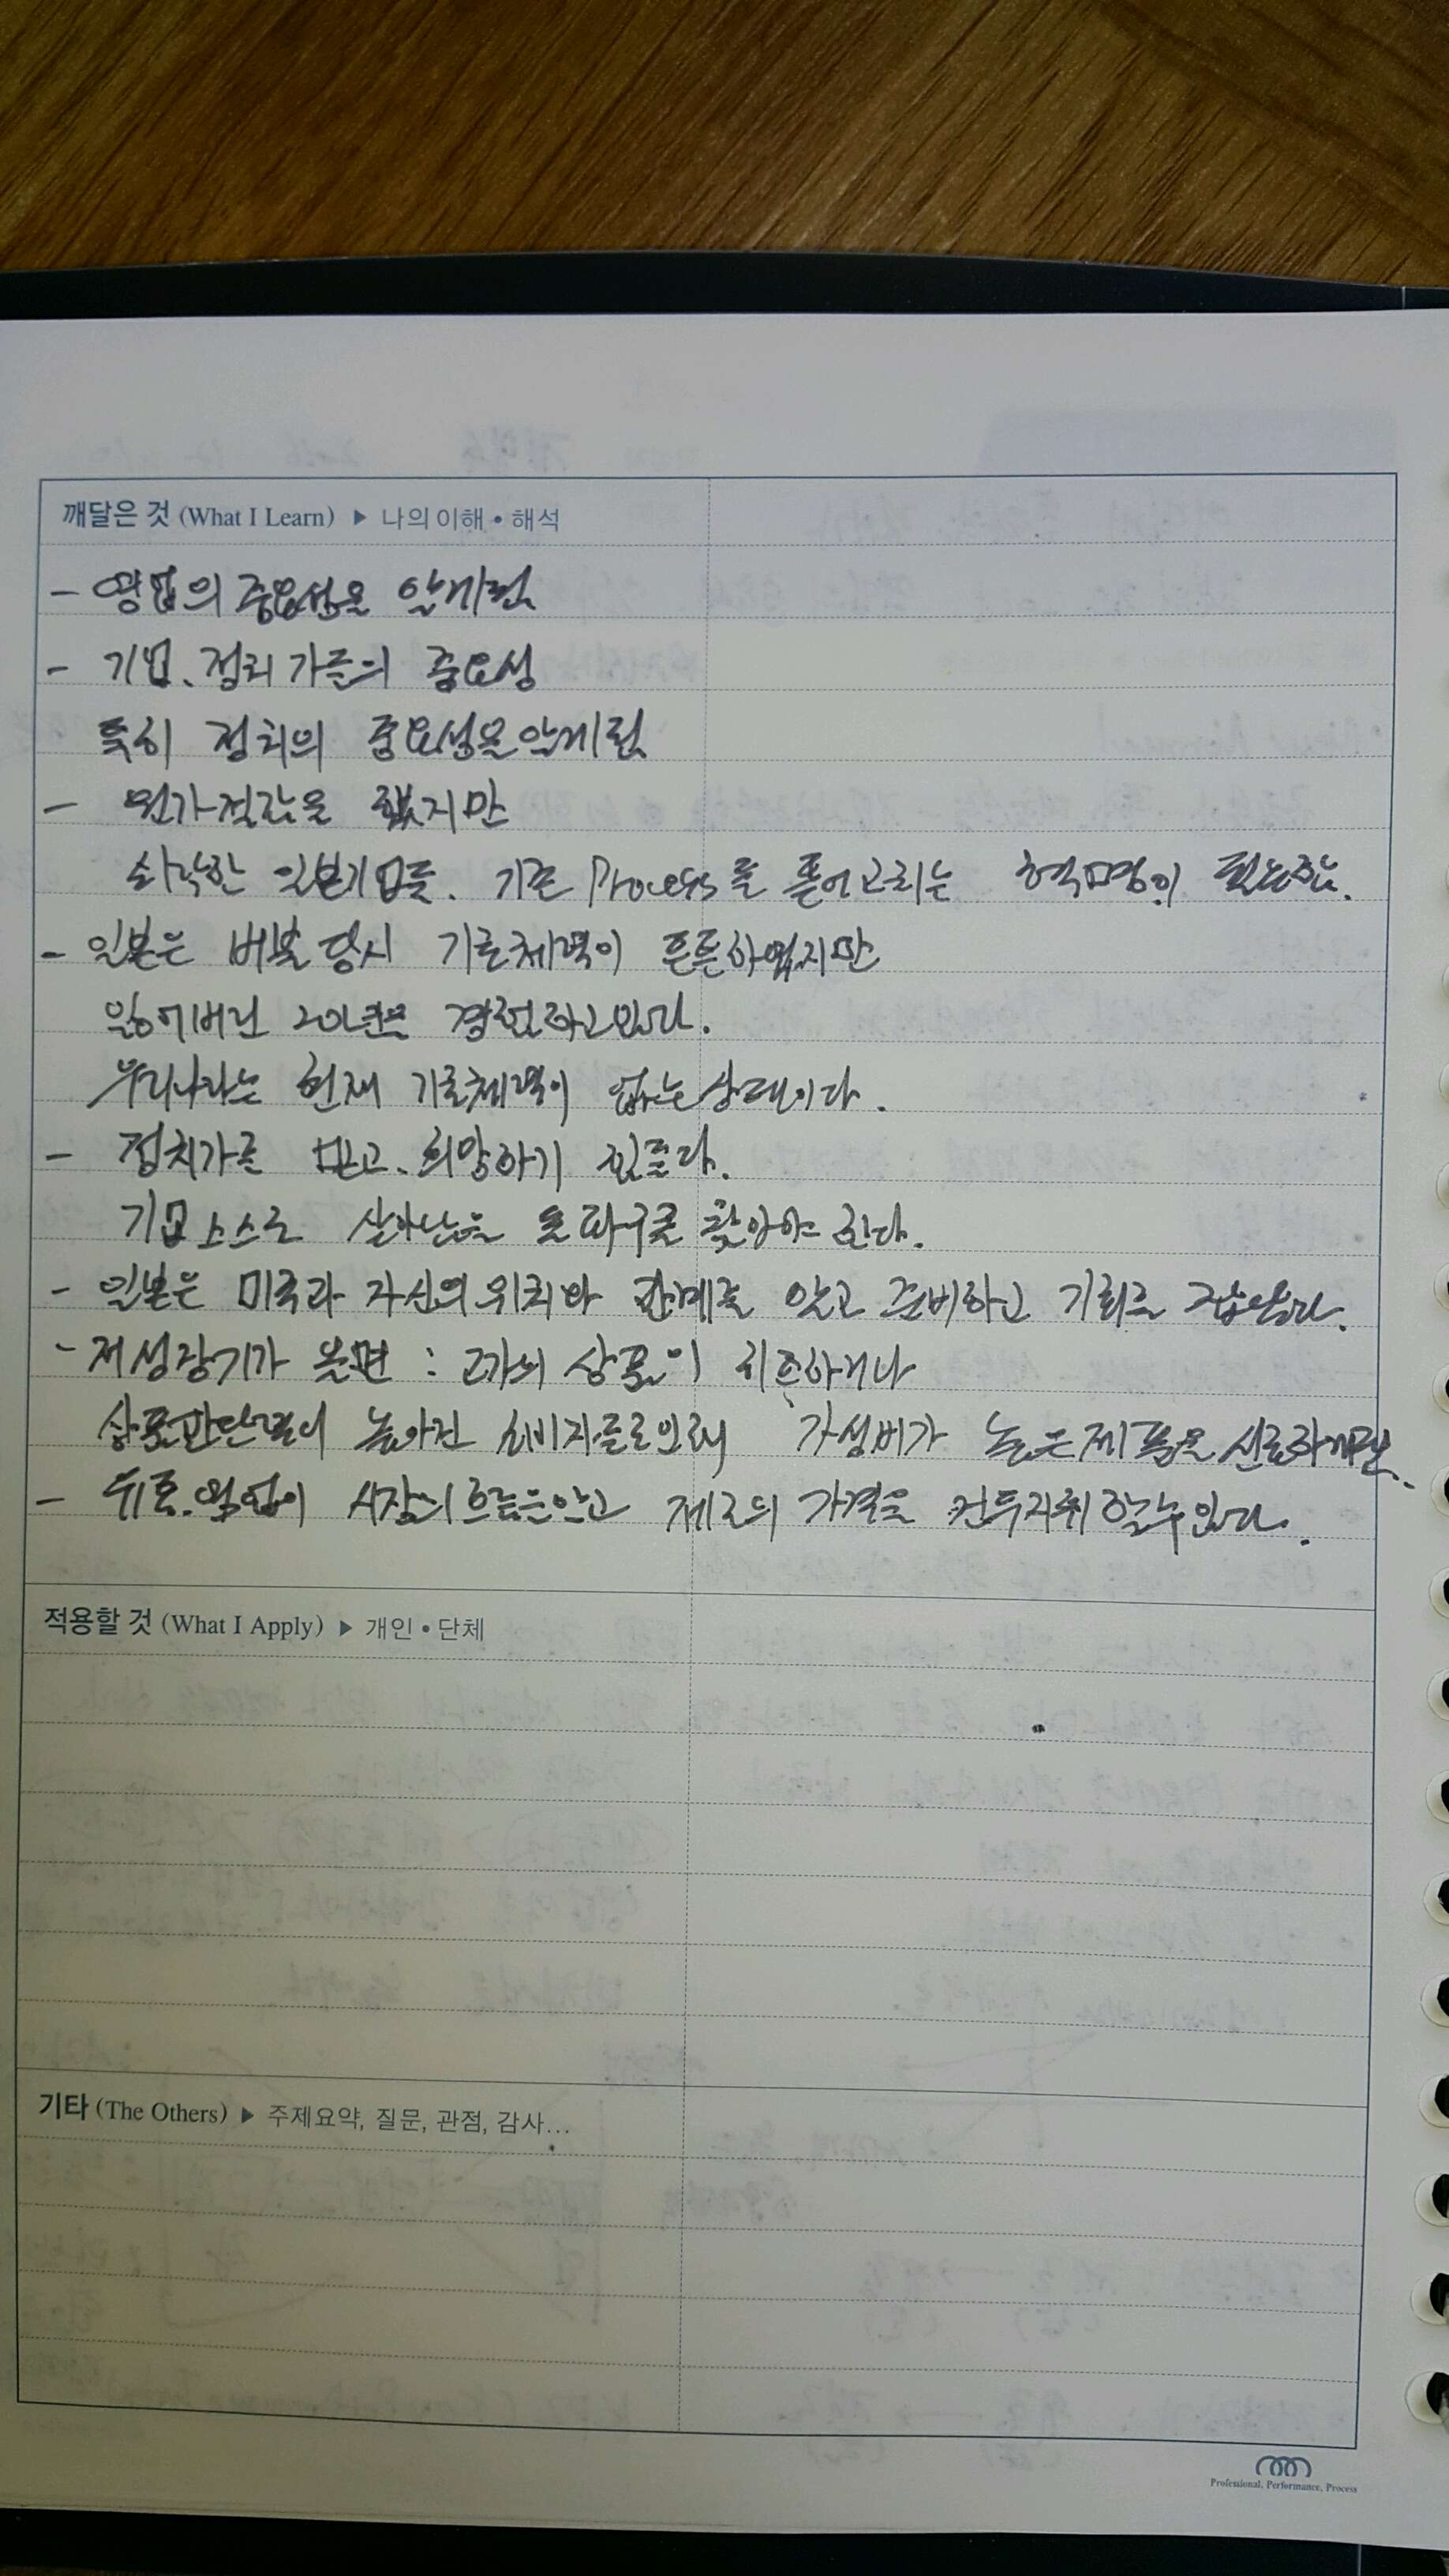 깨달은 것 (What I Learn) ▶ 나의 이해 • 해석
- 영업의 중요성을 알게됨
- 기업、정치가들의 중요성
특히 정치의 중요성을 알게됨
- 원가절감을 했지만
쇠락한 일본기업들. 기존 Process를 뜯어고치는 혁명이 필요함.
- 일본은 버블 당시 기초체력이 튼튼하였지만
잃어버린 20년을 경험하고있다.
우리나라는 현재 기초체력이 없는상태이다.
- 정치가를 믿고、희망하기 힘들다.
기업 스스로 살아남을 돌파구를 찾아야 한다.
- 일본은 미국과 자신의 위치와 관계를 알고 준비하고 기회를 잡았다.
- 저성장기가 올면 : 2가의 상품이 히트하거나
상품판단력이 높아진 소비자들로인해 가성비가 높은제품을 선호하게된다.
- 위로. 영업이 시장의 흐름을알고 제2의 가격을 컨트롤 할수있다.
적용할 것 (What I Apply) ▶ 개인 • 단체
기타 (The Others) ▶ 주제요약, 질문, 관점, 감사...
Professional, Performance, Process